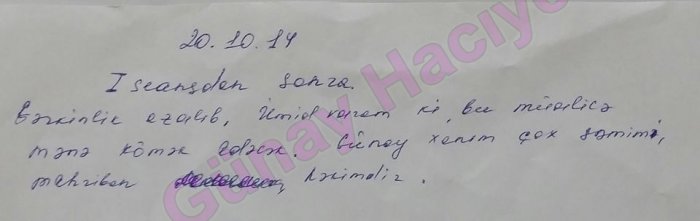 20.10.14
I seansdan sonra.
Gərkinlik azalıb, Ümidvaram ki, bu müalicə
mənə kömək edəcək. Günay xanım çox səmimi,
mehriban həkimdir.
Günay Hacıye